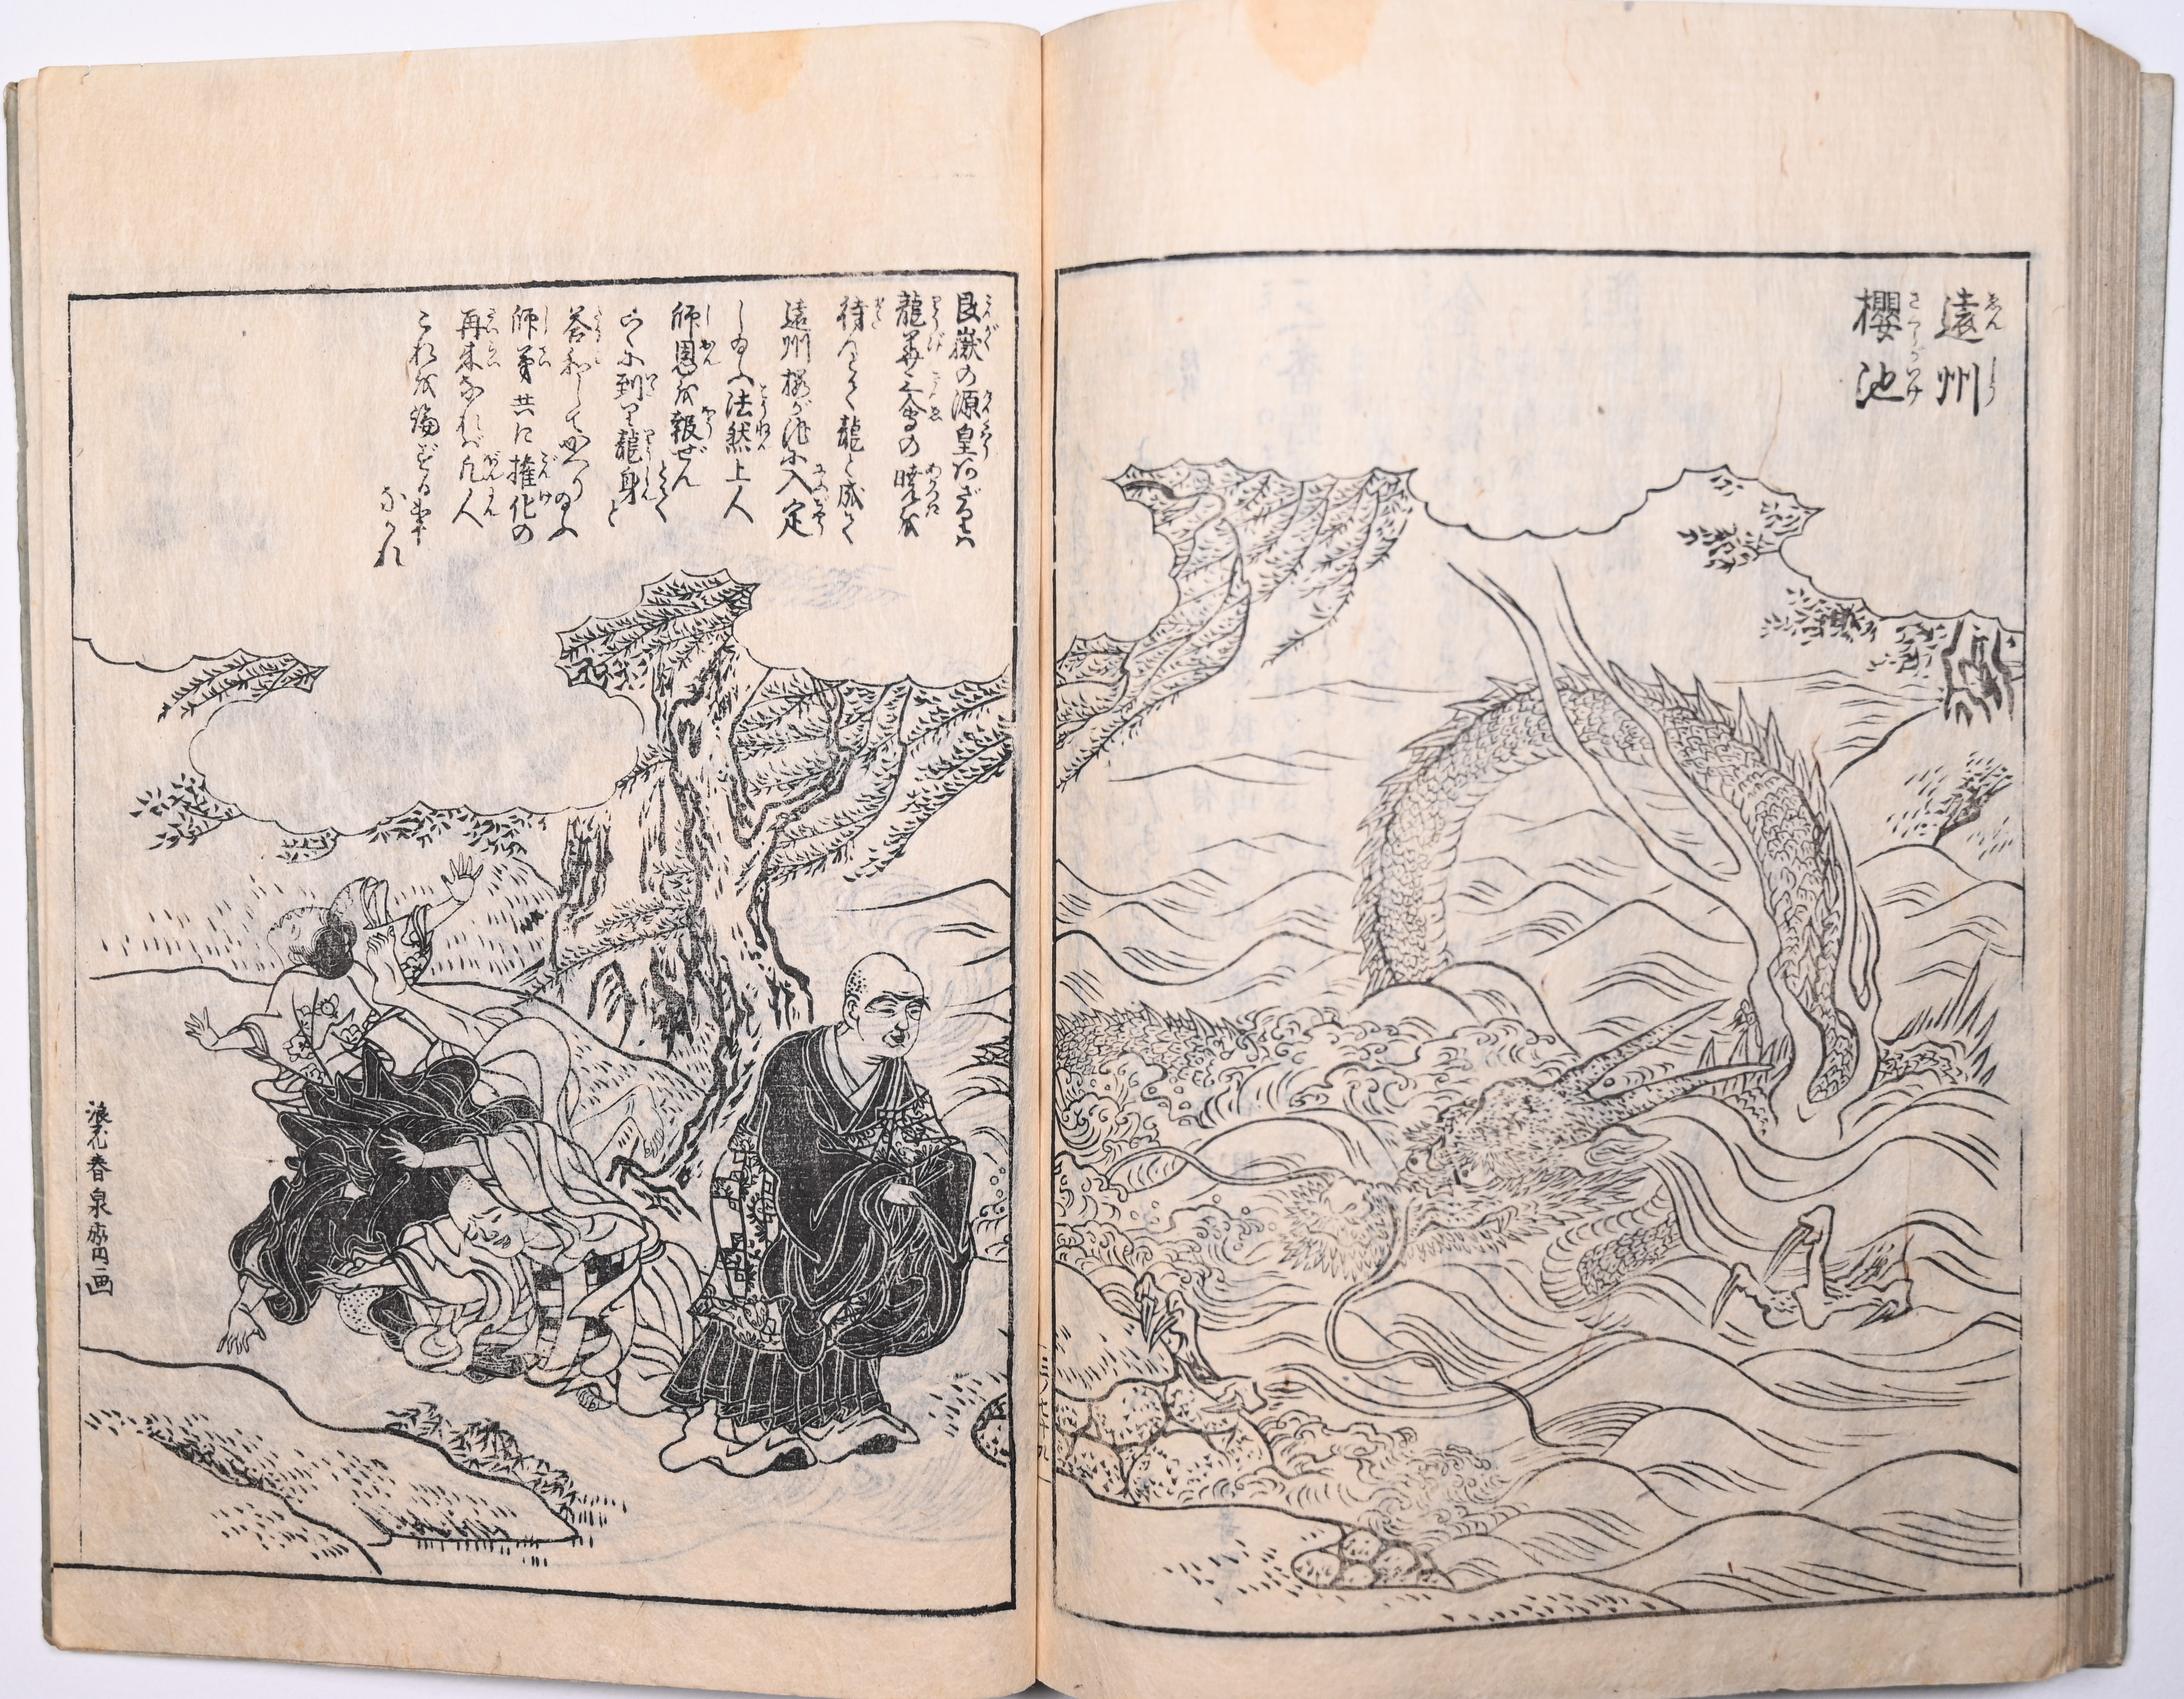 遠州
櫻池
艮嶽の源皇阿ざりハ
龍華三會の暁を
待んとて龍と成て
遠州櫻が池に入定
し給ふ法然上人
師恩を報ぜんとて
こゝに到り龍身と
答和して
師弟共に権化の
再来なれば凡人
これを論ずる事
なかれ
浪花春泉斎画